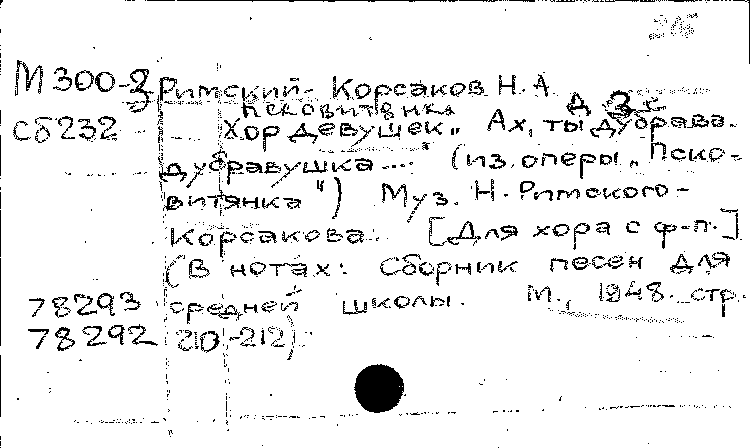 215
М300-3 Римский-Корсаков Н.А.
Псковитянка Д 3х
Сб232 Хор девушек „Ах, ты дубрава-
дубравушка...." (из оперы „Пско-
витянка") Муз. Н. Римского-
Корсакова. [Для хора с ф-п.]
(В нотах: Сборник песен для
78293 средней школы. М., 1948. стр.
78292 210-212)